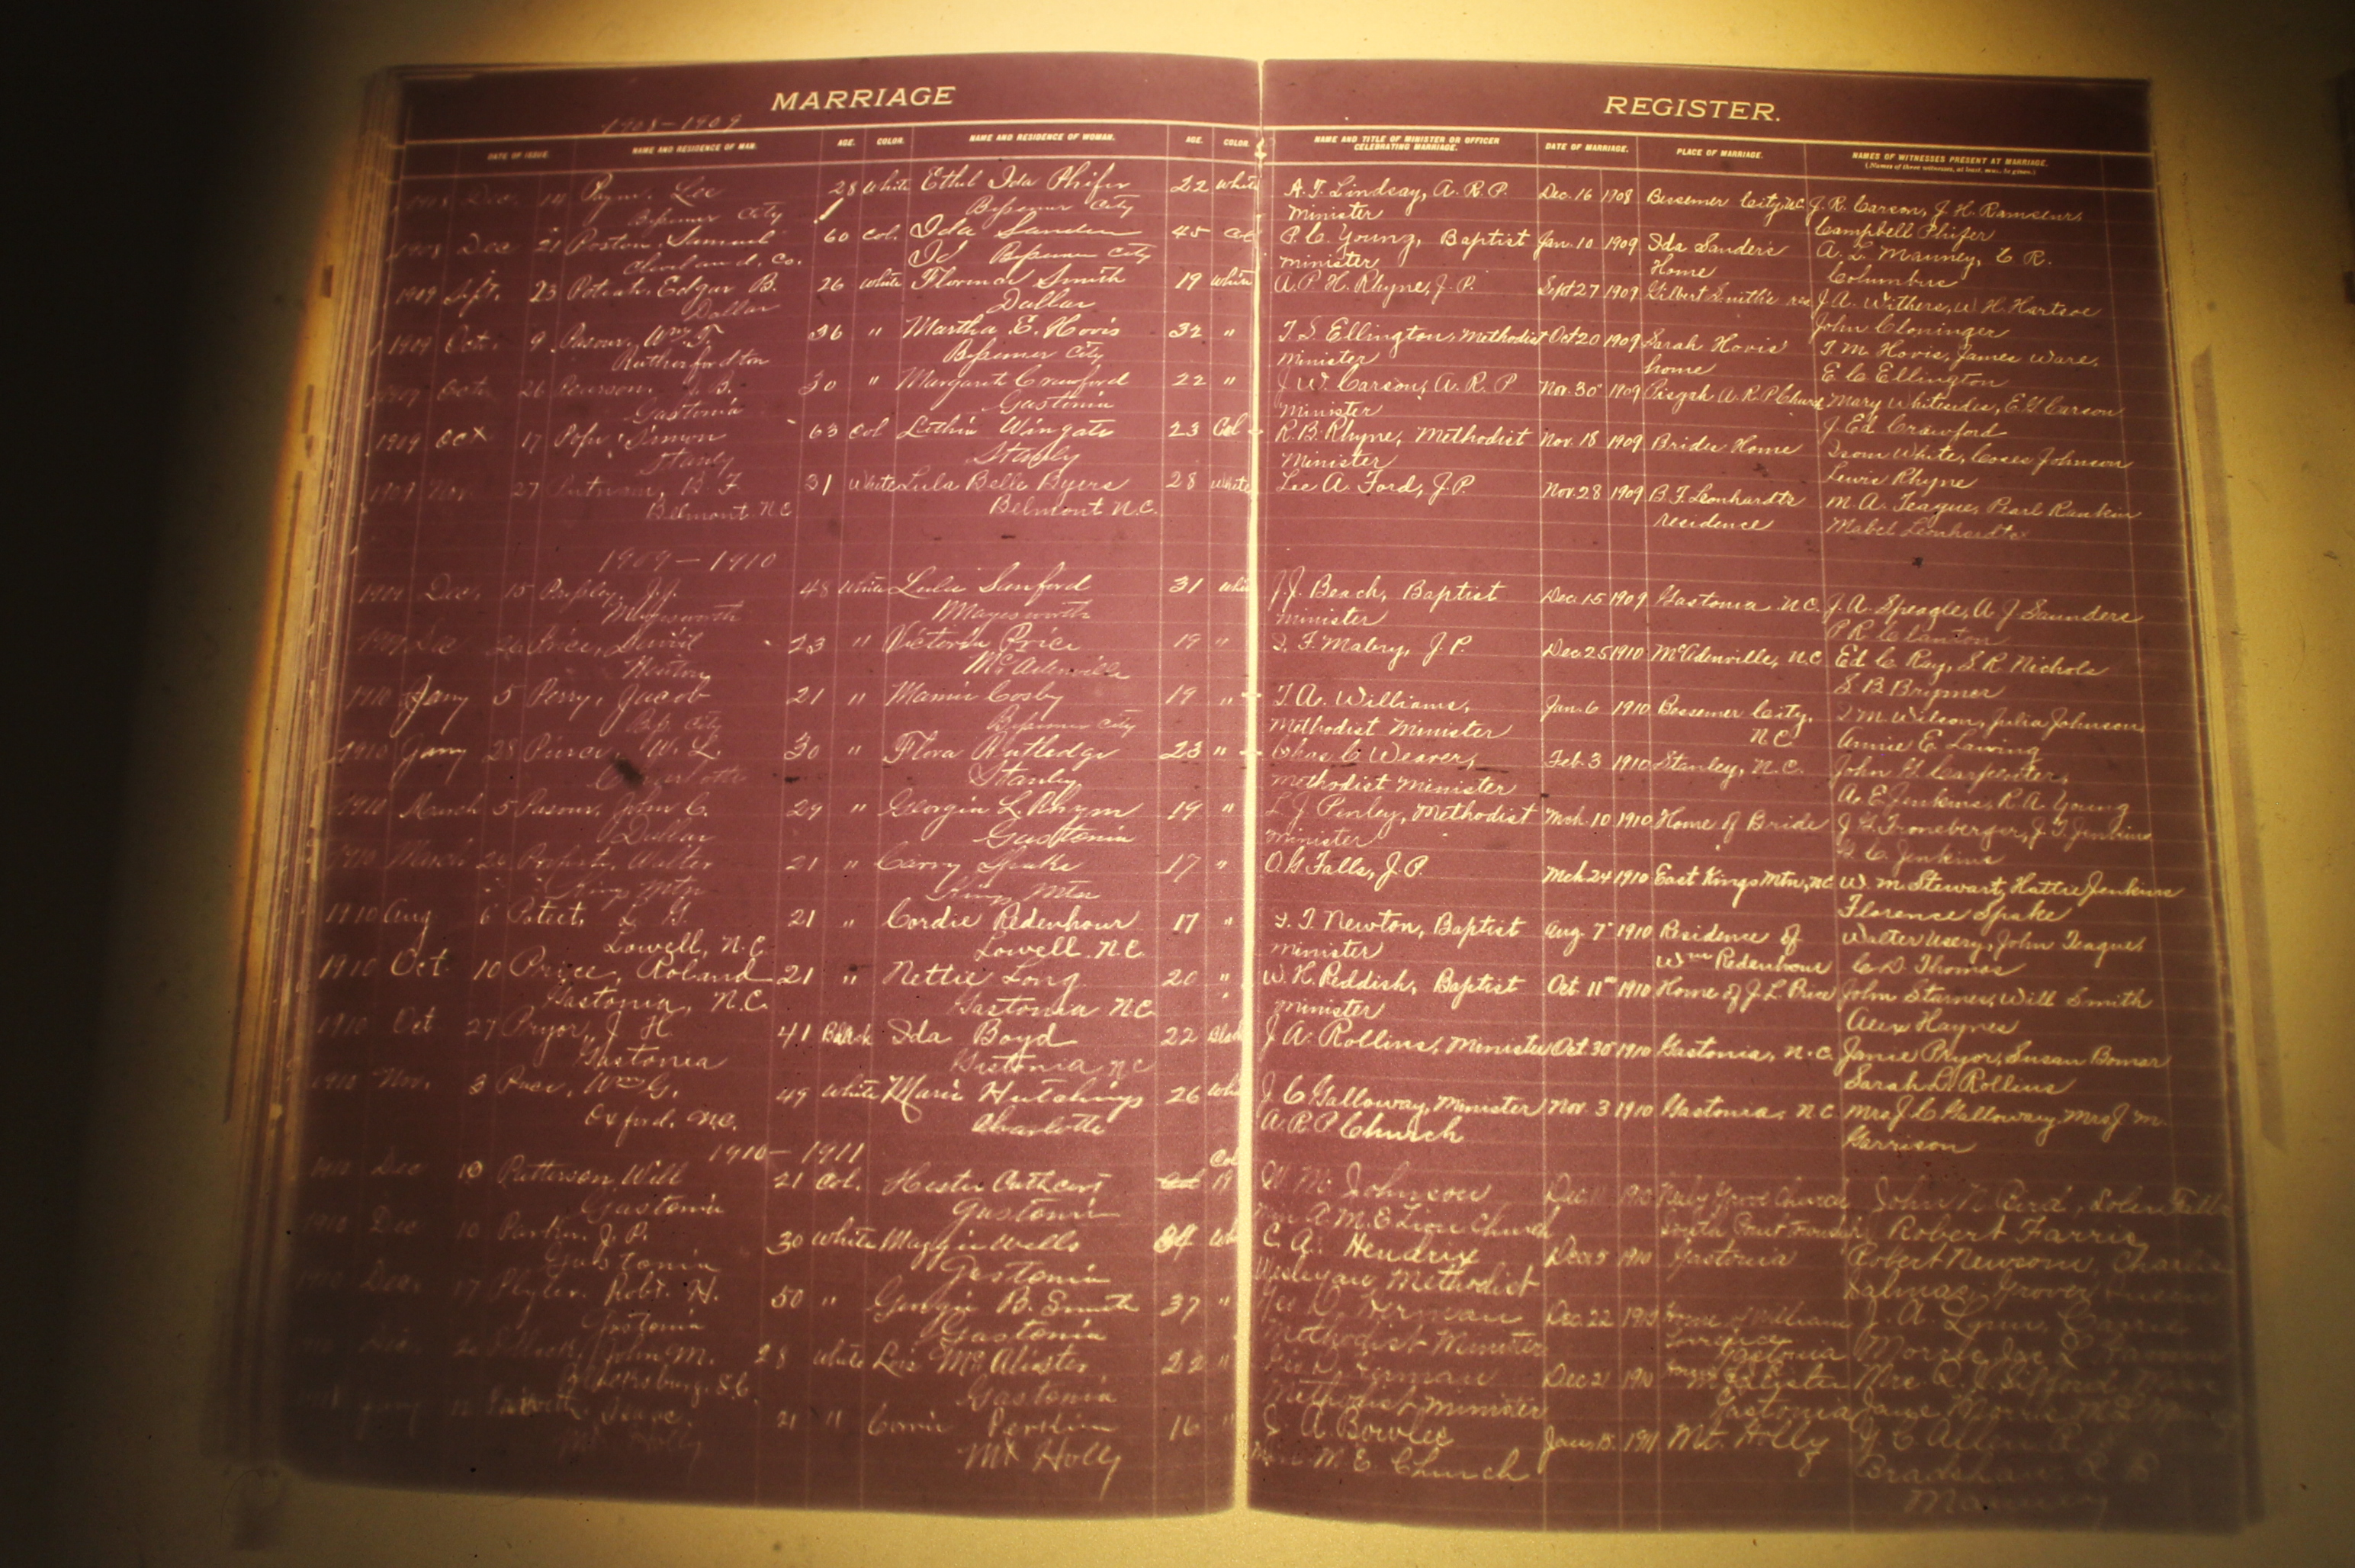 MARRIAGE
1908-1909
DATE OF ISSUE. NAME AND RESIDENCE OF MAN. AGE. COLOR. NAME AND RESIDENCE OF WOMAN. AGE. COLOR.
1908 Dec. 14 Payne, Lee 28 White Ethel Ida Phifer 22 White
Bessemer City Bessemer City
1908 Dec 21 Poston, Samuel 60 Col. Ida Sanders 45 Col
Cleveland, Co. Bessemer City
1909 Sept. 23 Poteat, Edgar B. 26 White Florence Smith 19 White
Dallas Dallas
1909 Oct. 9 Pasour, Wm. T. 36 " Martha E. Hovis 32 "
Rutherfordton Bessemer City
1909 Oct. 26 Pearson, B. 30 " Margaret Crawford 22 "
Gastonia Gastonia
1909 Oct 17 Pope, Simon 63 Col Wingate 23 Col
Stanly Stanly
1909 Nov. 27 Putnam, B. F 31 White Lula Belle Byers 28 White
Belmont N.C. Belmont N.C.
1909-1910
1909 Dec. 15 Pressley, J.J. 48 White Lula Sanford 31 White
Mayesworth Mayesworth
1909 Dec Price, David 23 " Victoria Price 19 "
McAdenville
1910 Jany 5 Perry, Jacob 21 " Mamie Cosby 19 "
Bes. City Bessemer City
1910 Jany 28 Pierce, W. L. 30 " Flora Rutledge 23 "
Charlotte Stanly
1910 March 5 Pasour, John C. 29 " Georgia L Rhyne 19 "
Dallas Gastonia
1910 March Walter 21 " Carry Spake 17 "
Kings Mtn Kings Mtn
1910 Aug 6 Poteet, L. G. 21 " Cordie Redenhour 17 "
Lowell, N.C. Lowell. N.C.
1910 Oct. 10 Price, Roland 21 " Nettie Long 20 "
Gastonia, N.C. Gastonia N.C
1910 Oct 27 Pryor, J. H 41 Black Ida Boyd 22 Black
Gastonia Gastonia N.C
1910 Nov. 3 Pace, Wm G. 49 White Marie Hutchings 26 Whi
Oxford, N.C. Charlotte
1910-1911
1910 Dec 10 Patterson Will 21 Col. Hester Cathcart 19 Col
Gastonia Gastonia
1910 Dec 10 Parker, J. P. 30 White Maggie Wells 34 Wh
Gastonia Gastonia
1910 Dec. 17 Plyler, Robt. H. 50 " Georgie B. Smith 37 "
Gastonia Gastonia
Dec. John M. 28 White Lois McAlister 22 "
Blacksburg, S.C. Gastonia
Jany 12 Isaac. 21 " Corrie Perkins 16 "
Mt Holly Mt Holly
REGISTER.
NAME AND TITLE OF MINISTER OR OFFICER CELEBRATING MARRIAGE. DATE OF MARRIAGE. PLACE OF MARRIAGE. NAMES OF WITNESSES PRESENT AT MARRIAGE.
(Names of three witnesses, at least, must be given.)
A. T. Lindsay, A. R. P. Dec. 16 1908 Bessemer City, N.C. J. R. Carson, J. H. Ramseur,
Minister Campbell Phifer
P. C. Young, Baptist Jan. 10 1909 Ida Sanders A. L. Mauney, C R.
Minister Home Columbus
A. P. H. Rhyne, J. P. Sept 27 1909 Gilbert Smith's res J. A. Withers, W H Hartsoe
John Cloninger
T. S Ellington, Methodist Oct 20 1909 Sarah Hovis T. M. Hovis, James Ware,
Minister home E C Ellington
J. W. Carson, A. R. P Nov. 30 1909 Pisgah A. R. P Church Mary Whitesides, E. G Carson
Minister J. Ed Crawford
R. B. Rhyne, Methodist Nov. 18 1909 Brides Home Isom White, Johnson
Minister Lewis Rhyne
Lee A. Ford, J. P. Nov. 28 1909 B. F. Leonhardts M. A. Teague, Pearl Rankin
residence Mabel Leonhardts
J. J. Beach, Baptist Dec. 15 1909 Gastonia N.C. J. A. Speagle, A J Saunders
Minister P. R. Clanton
F. Mabry, J. P. Dec 25 1910 McAdenville, N.C. Ed C Ray, S. R. Nichols
S. B Brymer
T. A. Williams, Jan. 6 1910 Bessemer City, M. Wilson, Julia Johnson
Methodist Minister N.C Annie E Lawing
Chas C Weaver, Feb. 3 1910 Stanley, N.C. John H Carpenter,
Methodist Minister A. E Jenkins, R. A. Young
L. J. Penley, Methodist Mch. 10 1910 Home of Bride J G. Froneberger, J. T. Jenkins
Minister C. Jenkins
O. G. Falls, J. P. Mch 24 1910 East Kings Mtn, NC W. M Stewart, Hattie Jenkins
Florence Spake
F. T Newton, Baptist Aug. 7 1910 Residence of Walter Usery, John Teague,
Minister Wm Redenhour C. D. Thomas
W. H. Reddish, Baptist Oct. 11 1910 Home of J. L Price John Starnes, Will Smith
Minister Alex Haynes
J. A. Rollins, Minister Oct. 30 1910 Gastonia, N.C. Janie Pryor, Susan Bomar
Sarah L Rollins
J. C Galloway, Minister Nov. 3 1910 Gastonia, N.C Mrs J. C Galloway, Mrs J. M.
A. R P Church Garrison
W. M. Johnson Dec 1910 Church John N.
A. M. E Zion Church South Point Township Robert Farris
C. A. Hendrix Dec. 1910 Gastonia Robert Newsom, Charlie
Wesleyan Methodist Grover
Geo D. Herman Dec. 22 1910 Home of William J. A.
Methodist Minister Gastonia
Geo D. Herman Dec 21 1910 McAlister
Methodist Minister Gastonia
A. Bowles Jan. 15. 1911 Mt. Holly
M. E. Church Bradshaw